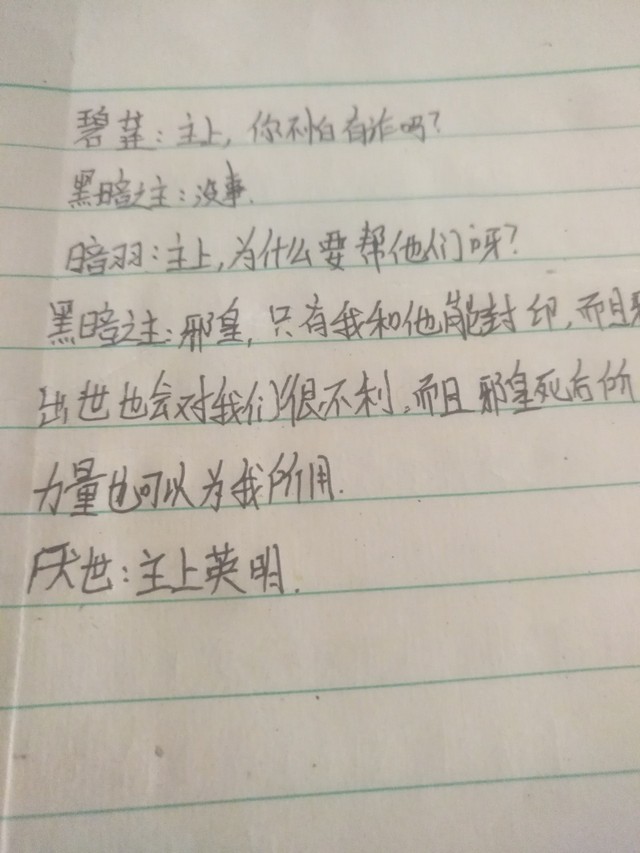 碧莲：主上，你不怕有诈吗？
黑暗之主：没事.
暗羽：主上，为什么要帮他们呀？
黑暗之主：邪皇，只有我和他能封印，而且
出世也会对我们很不利，而且邪皇死后的
力量也可以为我所用.
厌世：主上英明.